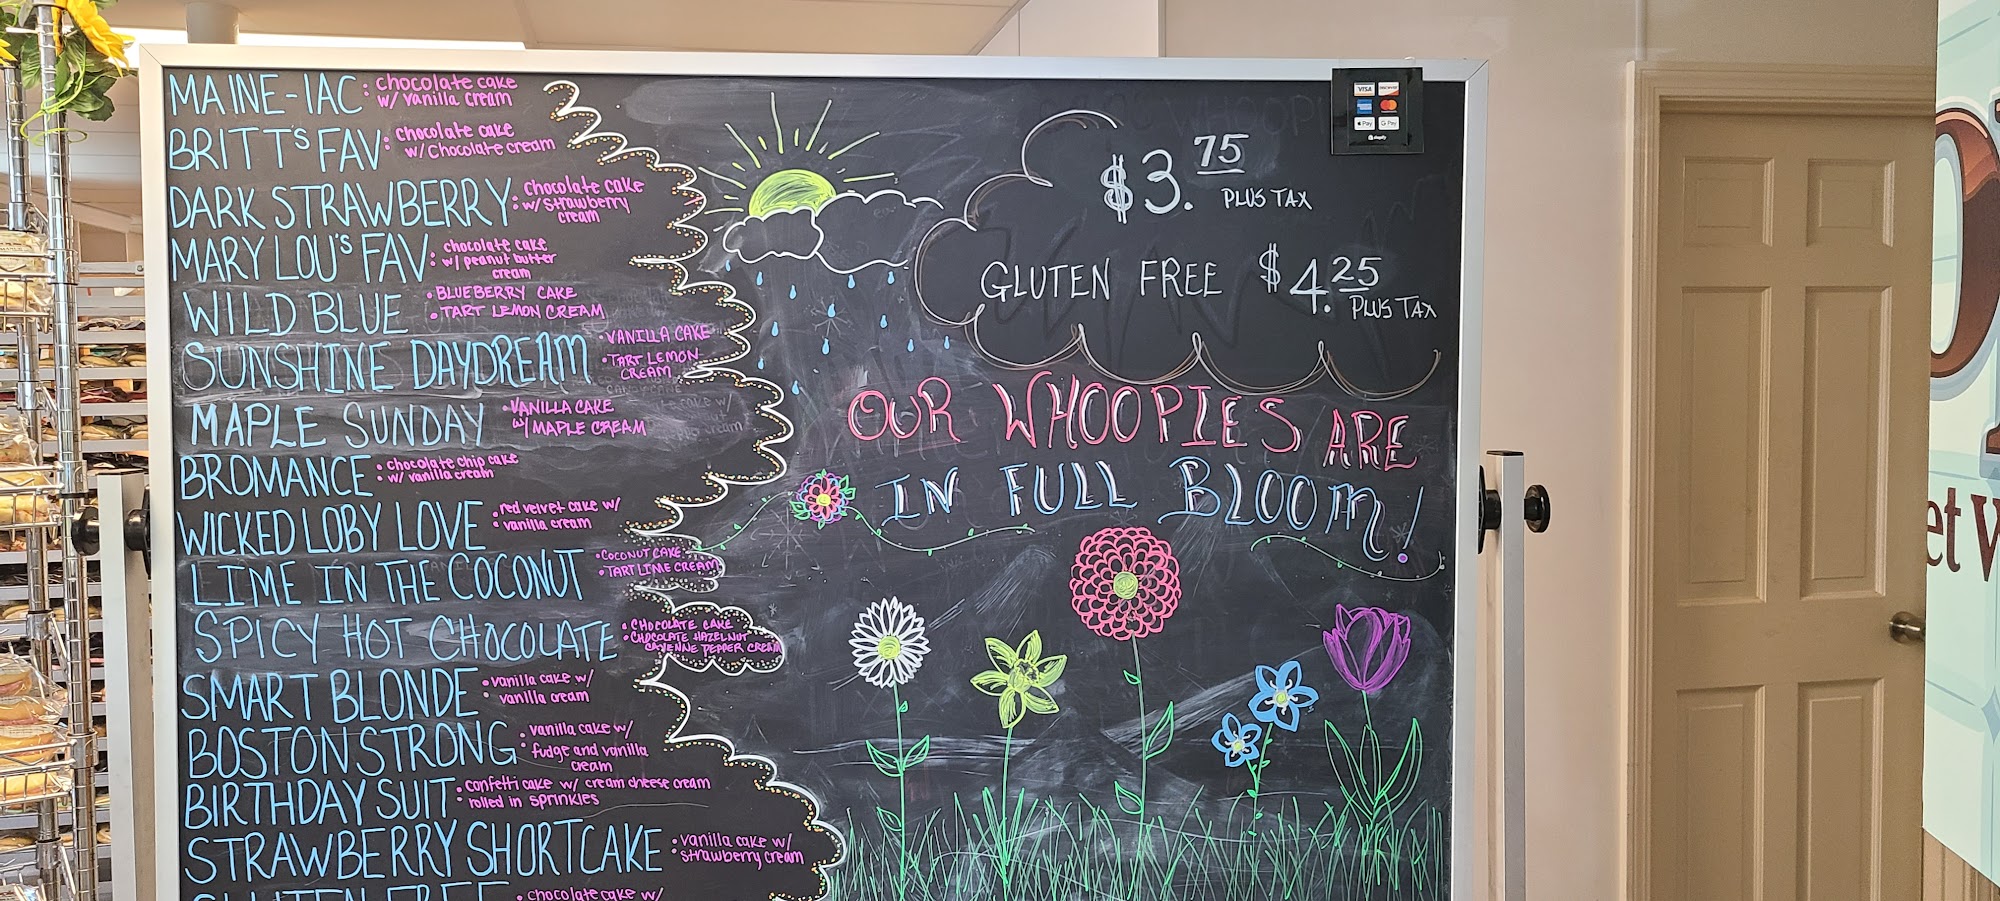 MAINE-IAC: chocolate cake
w/ vanilla cream
BRITT'S FAV: chocolate cake
w/ Chocolate cream
DARK STRAWBERRY: chocolate cake
w/ strawberry
cream
MARY LOU'S FAV: chocolate cake
w/ peanut butter
cream
WILD BLUE • BLUEBERRY CAKE
• TART LEMON CREAM
SUNSHINE DAYDREAM • VANILLA CAKE
• TART LEMON
CREAM
MAPLE SUNDAY • VANILLA CAKE
w/ MAPLE CREAM
BROMANCE • chocolate chip cake
• w/ vanilla cream
WICKED LOBY LOVE • red velvet cake w/
• vanilla cream
LIME IN THE COCONUT • COCONUT CAKE
• TART LIME CREAM
SPICY HOT CHOCOLATE • CHOCOLATE CAKE
• CHOCOLATE HAZELNUT
CAYENNE PEPPER CREAM
SMART BLONDE • vanilla cake w/
• vanilla cream
BOSTON STRONG • vanilla cake w/
• fudge and vanilla
cream
BIRTHDAY SUIT • confetti cake w/ cream cheese cream
• rolled in sprinkles
STRAWBERRY SHORTCAKE • vanilla cake w/
• strawberry cream
GLUTEN FREE • chocolate cake w/
$3.75
PLUS TAX
GLUTEN FREE $4.25
PLUS TAX
OUR WHOOPIES ARE
IN FULL BLOOM!
VISA DISCOVER
Pay G Pay
shopify
et W